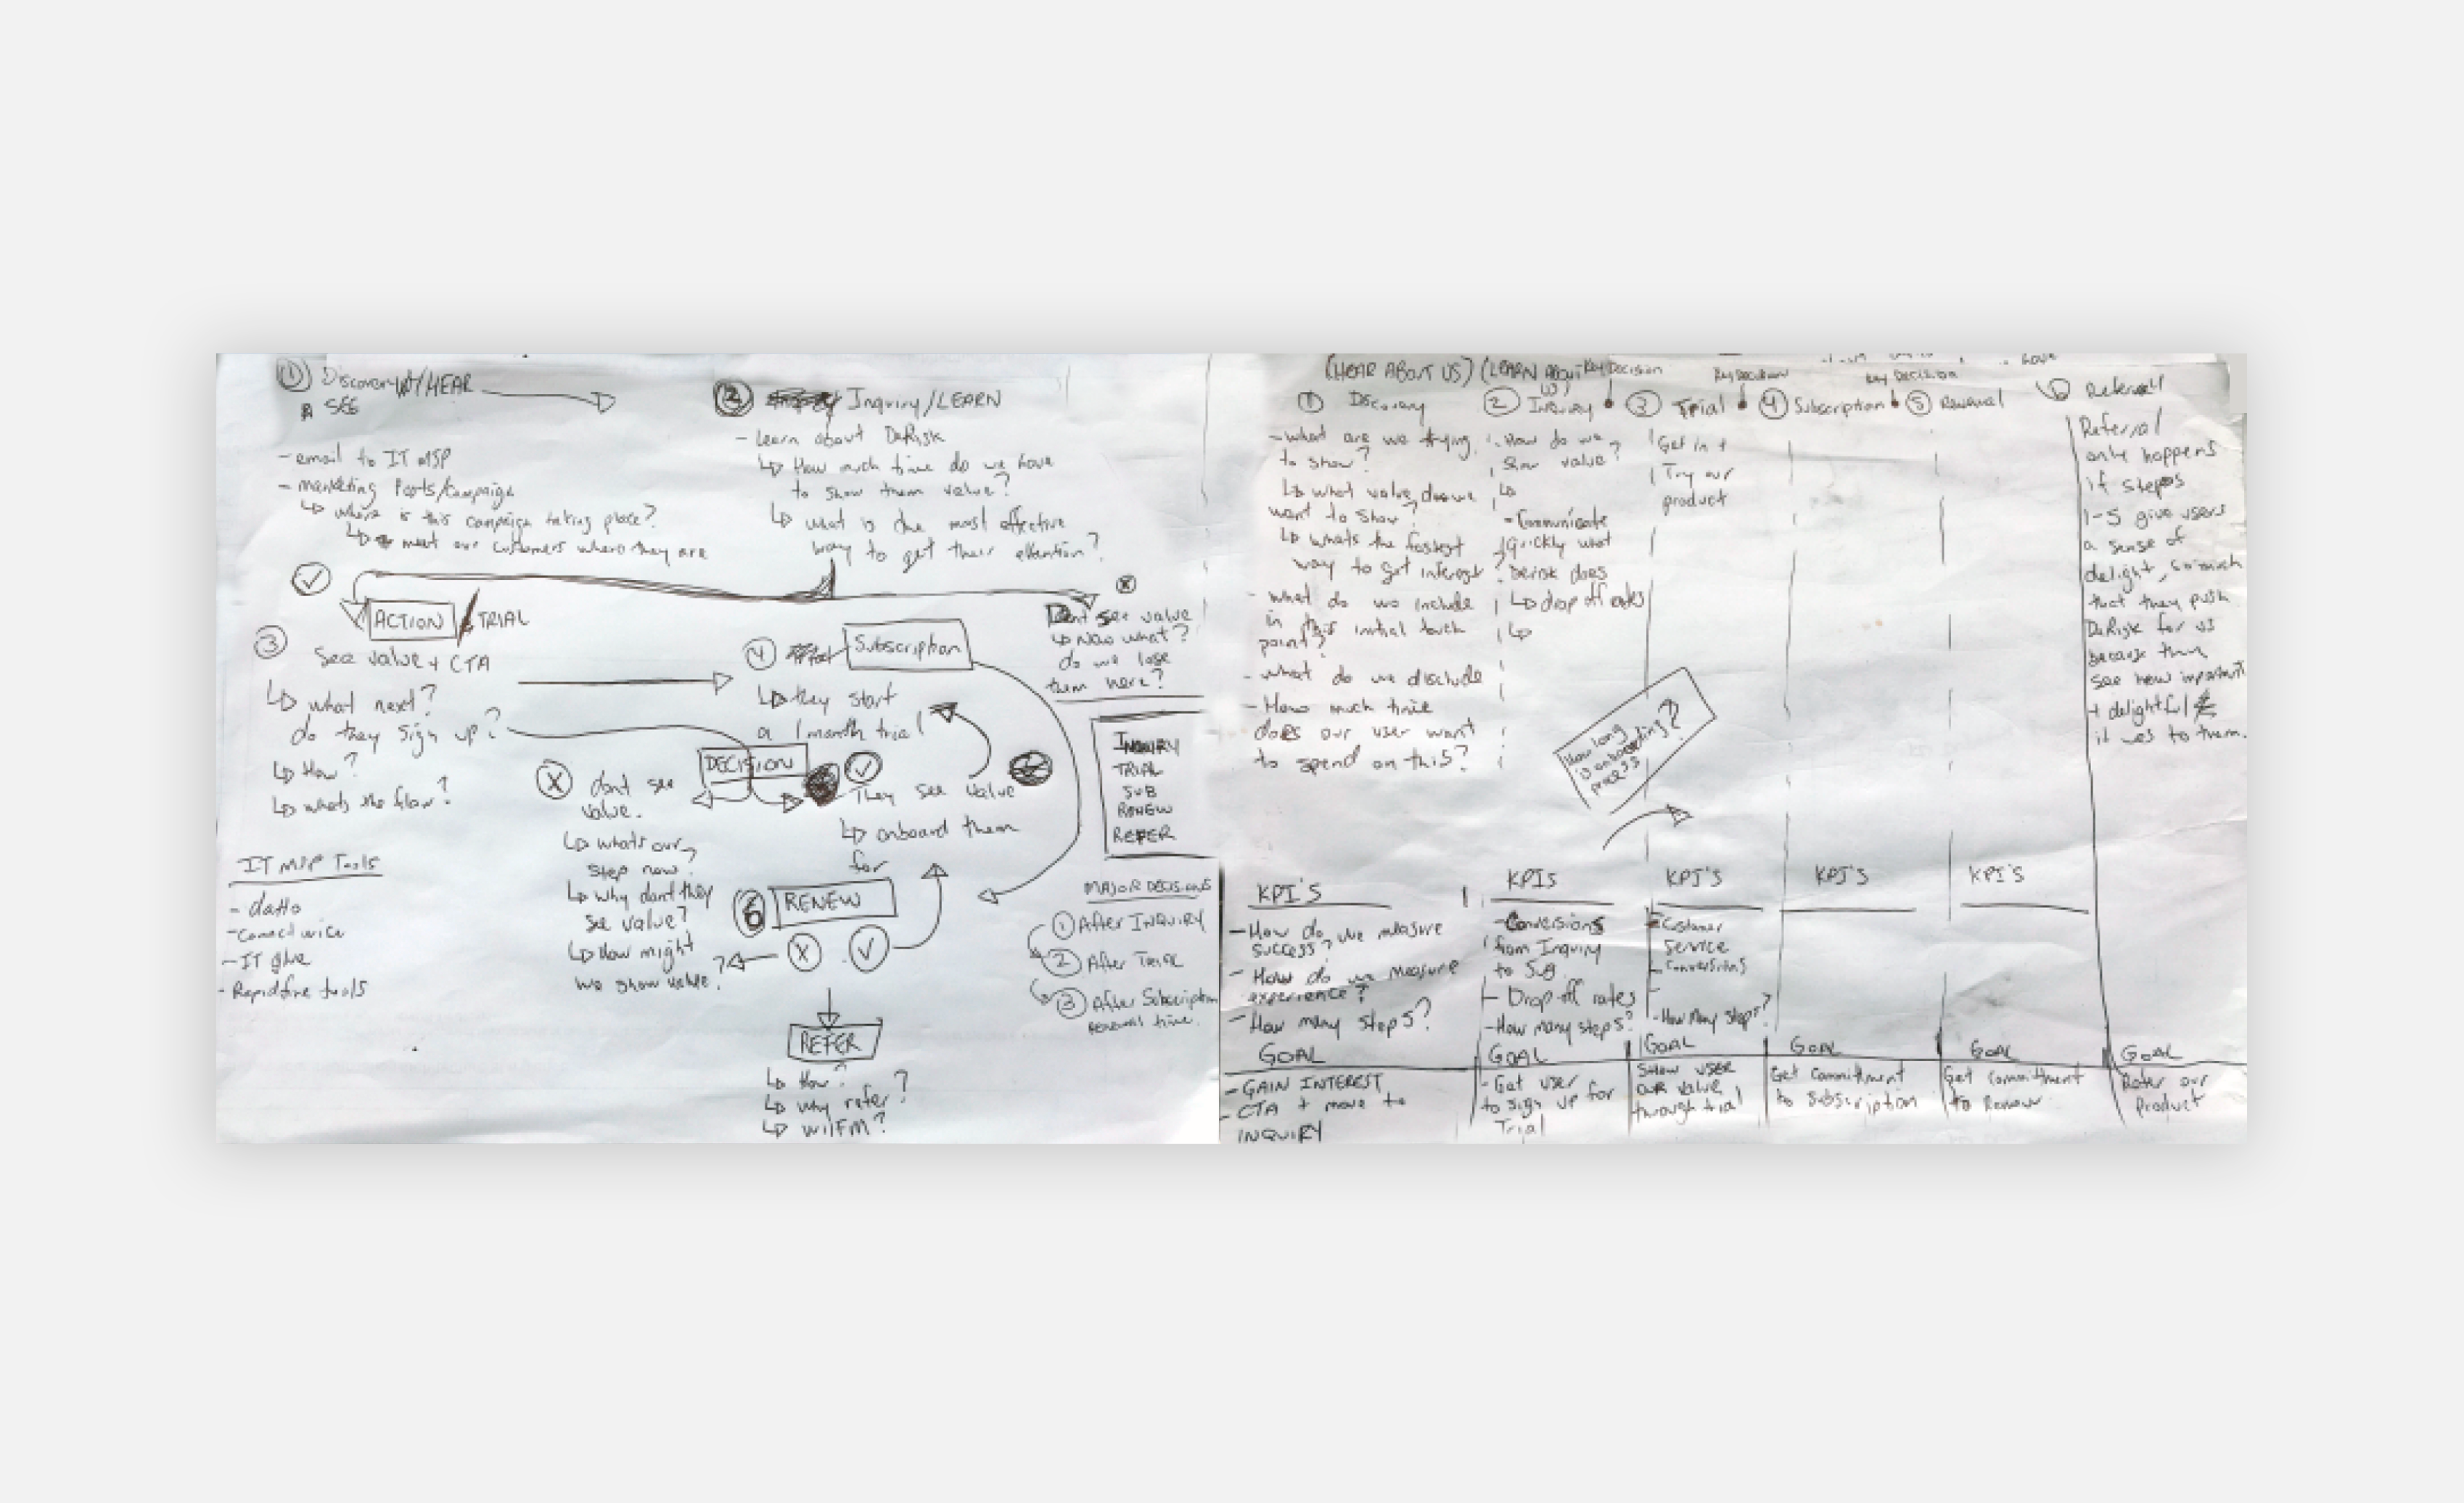 1 Discovery/HEAR
SEE
- email to IT MSP
- marketing Posts/Campaign
where is this campaign taking place?
meet our customers where they are
2 Inquiry/LEARN
- learn about DeRisk
How much time do we have
to show them value?
what is the most effective
way to get their attention?
ACTION / TRIAL
3
See value + CTA
what next?
do they sign up?
How?
whats the flow?
4 Subscription
they start
a 1 month trial
Dont see value
Now what?
do we lose
them here?
INQUIRY
TRIAL
SUB
RENEW
REFER
DECISION
X dont see
value.
whats our
step now?
why dont they
see value?
How might
we show value?
They see value
onboard them
for
6 RENEW
X
REFER
How?
why refer?
WIIFM?
IT MSP Tools
- datto
- Connectwise
- IT glue
- Rapidfire tools
MAJOR DECISIONS
1 After INQUIRY
2 After TRIAL
3 After Subscription
renewal time.
(HEAR ABOUT US) (LEARN ABOUT
US)
Key Decision
Key Decision
Key Decision
1 Discovery
2 Inquiry
3 Trial
4 Subscription
5 Renewal
6 Referral
- what are we trying
to show?
what value do we
want to show?
whats the fastest
way to get interest?
- what do we include
in this initial touch
point?
- what do we disclude
- How much time
does our user want
to spend on this?
- How do we
show value?
- Communicate
quickly what
Derisk does
drop off rates
Get in +
Try our
product
Referral
only happens
if steps
1-5 give users
a sense of
delight, so much
that they push
DeRisk for us
because they
see how important
+ delightful
it was to them.
How long
is onboarding?
process
KPI'S
- How do we measure
success?
- How do we measure
experience?
- How many steps?
KPIs
- Conversions
from Inquiry
to Sub
- Drop off rates
- How many steps?
KPI'S
- Customer
Service
- Conversions
- How many steps?
KPI'S
KPI'S
GOAL
- GAIN INTEREST
- CTA + move to
INQUIRY
GOAL
- Get user
to sign up for
Trial
GOAL
SHOW USER
OUR value
through trial
GOAL
Get commitment
to Subscription
GOAL
Get commitment
to Renew
GOAL
Refer our
Product